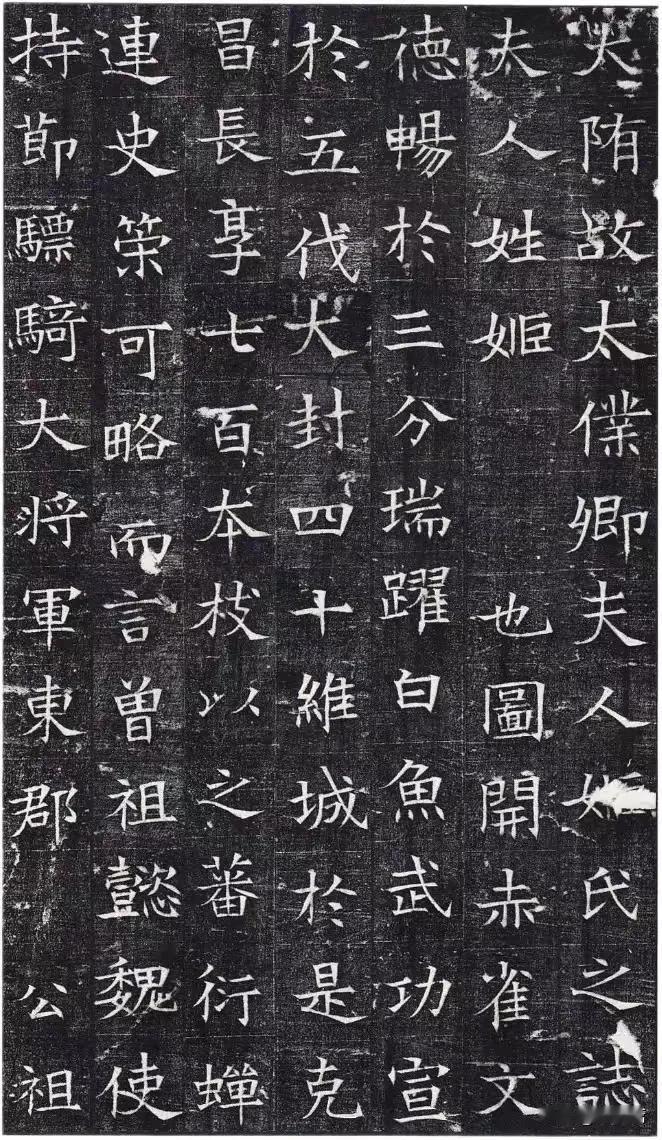 大陏故太僕卿夫人姬氏之誌
夫人姓姬 也圖開赤雀文
德暢於三分瑞躍白魚武功宣
於五伐大封四十維城於是克
昌長享七百本枝以之蕃衍蟬
連史策可略而言曾祖懿魏使
持節驃騎大将軍東郡 公祖